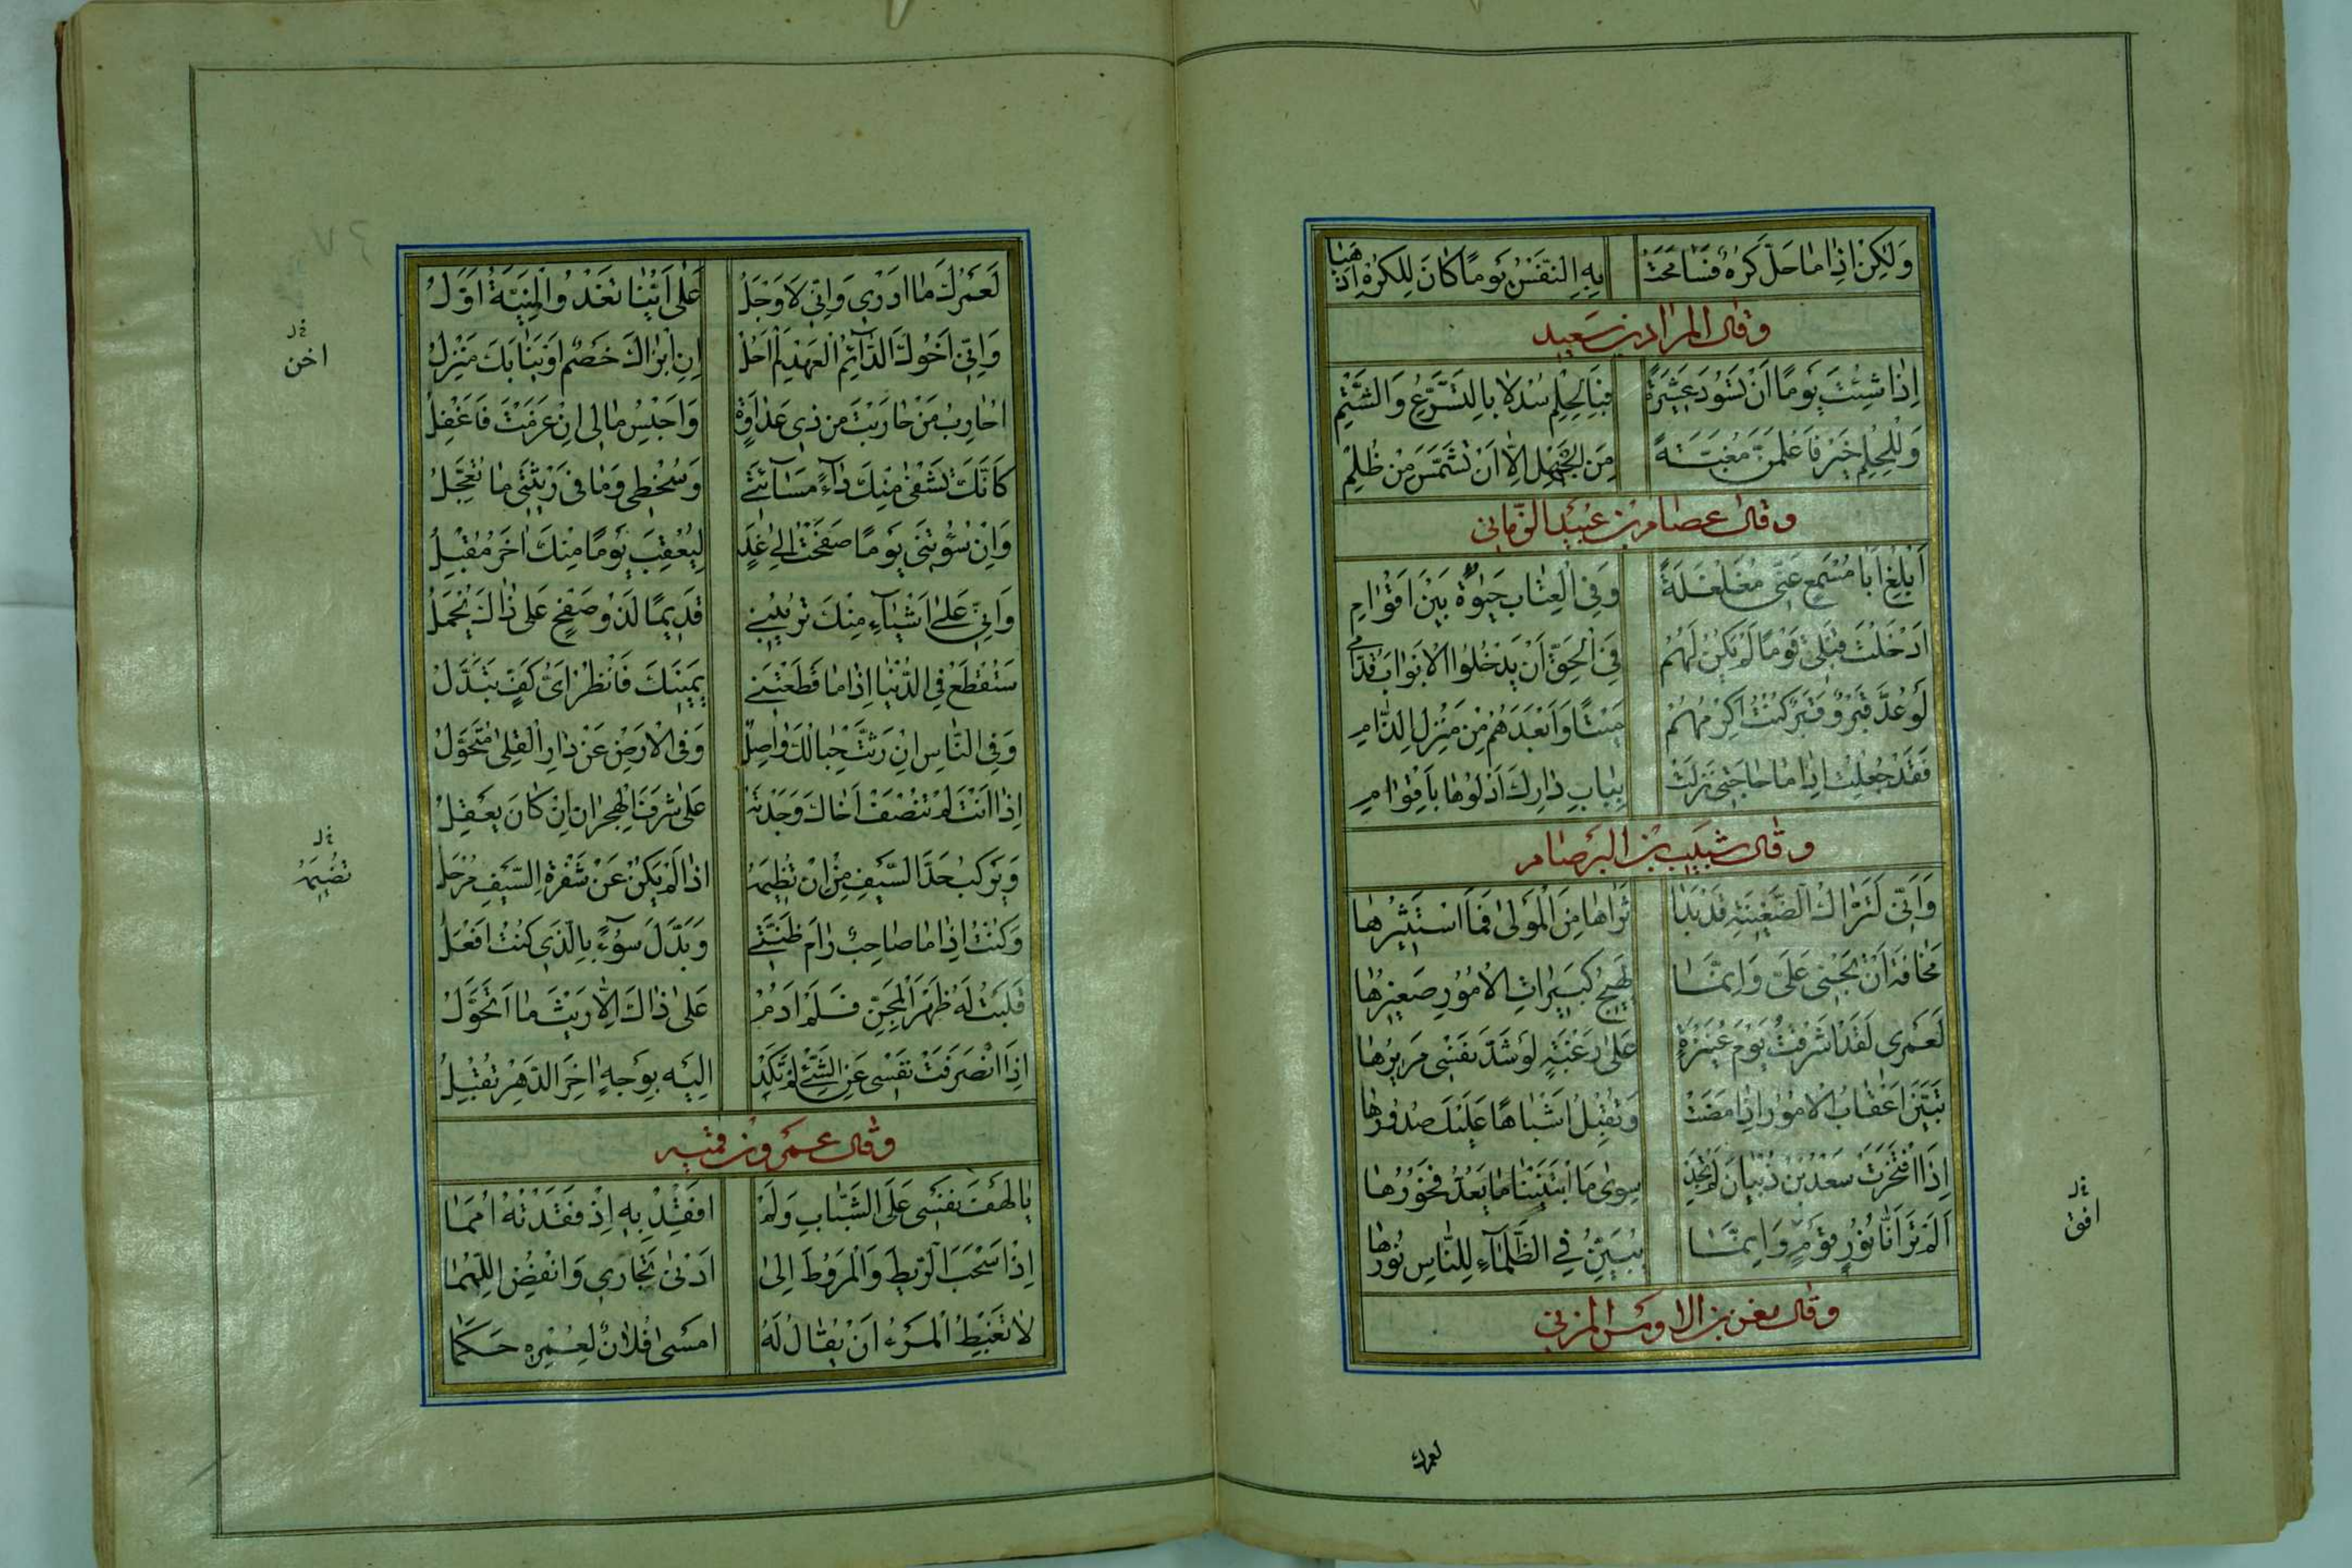 وَلٰكِنْ اِذٰا مٰا حَلَّ كَرْهٌ فَسٰامَحَتْ بِهِ النَّفْسُ يَوْمًا كٰانَ لِلْكَرْهِ اِذْهٰبٰا
وقال المرار بن سعيد
اِذٰا شِئْتَ يَوْمًا اَنْ تَسُودَ عَشِيرَةً فَبِالْحِلْمِ سُدْ لٰا بِالتَّسَرُّعِ وَالشَّتْمِ
وَلَلْحِلْمُ خَيْرٌ فَاعْلَمَنَّ مَغَبَّةً مِنَ الْجَهْلِ اِلّٰا اَنْ تُشَمَّسَ مِنْ ظُلْمِ
وقال عصام بن عبيد الزمانى
اَبْلِغْ اَبٰا مُسْمِعٍ عَنِّى مُغَلْغَلَةً وَفِى الْعِتٰابِ حَيٰوةٌ بَيْنَ اَقْوٰامِ
اَدْخَلْتَ قَبْلِى قَوْمًا لَمْ يَكُنْ لَهُمْ فِى الْحَقِّ اَنْ يَدْخُلُوا الْاَبْوٰابَ قُدّٰامِى
لَوْ عُدَّ قَبْرٌ وَقَبْرٌ كُنْتُ اَكْرَمَهُمْ مَيْتًا وَاَبْعَدَهُمْ مِنْ مَنْزِلِ الذّٰامِ
فَقَدْ جَعَلْتُ اِذٰا مٰا حٰاجَتِى نَزَلَتْ بِبٰابِ دٰارِكَ اَدْلُوهٰا بِاَقْوٰامِ
وقال شبيب بن البرصام
وَاِنِّى لَتَرّٰاكُ الضَّغِينَةِ قَدْ بَدٰا ثَرٰاهٰا مِنَ الْمَوْلٰى فَمٰا اَسْتَثِيرُهٰا
مَخٰافَةَ اَنْ تَجْنِى عَلَىَّ وَاِنَّمٰا يَهِيجُ كَبِيرٰاتِ الْاُمُورِ صَغِيرُهٰا
لَعَمْرِى لَقَدْ اَشْرَفْتُ يَوْمَ عُنَيْزَةٍ عَلٰى رَغْبَةٍ لَوْ شَدَّ نَفْسِى مَرِيرُهٰا
تَبَيَّنُ اَعْقٰابُ الْاُمُورِ اِذٰا مَضَتْ وَتُقْبِلُ اَشْبٰاهًا عَلَيْكَ صُدُورُهٰا
اِذَا افْتَخَرَتْ سَعْدُ بْنُ ذُبْيٰانَ لَمْ تَجِدْ سِوٰى مَا ابْتَنَيْنٰا مٰا يَعُدُّ فَخُورُهٰا
اَلَمْ تَرَ اَنّٰا نُورُ قَوْمٍ وَاِنَّمٰا يُبَيِّنُ فِى الظَّلْمٰاءِ لِلنّٰاسِ نُورُهٰا
وقال معن بن الاوس المزنى
خ ل
افق
لعمرك
لَعَمْرُكَ مٰا اَدْرِى وَاِنِّى لَاَوْجَلُ عَلٰى اَيِّنٰا تَغْدُو الْمَنِيَّةُ اَوَّلُ
وَاِنِّى اَخُوكَ الدّٰائِمُ الْعَهْدِ لَمْ اَحُلْ اِنِ ابْزٰاكَ خَصْمٌ اَوْ نَبٰا بِكَ مَنْزِلُ
اُحٰارِبُ مَنْ حٰارَبْتَ مِنْ ذِى عَدٰاوَةٍ وَاَحْبِسُ مٰالِى اِنْ غَرِمْتَ فَاَعْقِلُ
كَاَنَّكَ تَشْفِى مِنْكَ دٰاءً مَسٰائَتِى وَسُخْطِى وَمٰا فِى رَيْثَتِى مٰا تُعَجِّلُ
وَاِنْ سُؤْتَنِى يَوْمًا صَفَحْتُ اِلٰى غَدٍ لِيُعْقِبَ يَوْمًا مِنْكَ اٰخَرُ مُقْبِلُ
وَاِنِّى عَلٰى اَشْيٰاءَ مِنْكَ تُرِيبُنِى قَدِيمًا لَذُو صَفْحٍ عَلٰى ذٰاكَ مُجْمِلُ
سَتَقْطَعُ فِى الدُّنْيٰا اِذٰا مٰا قَطَعْتَنِى يَمِينَكَ فَانْظُرْ اَىَّ كَفٍّ تَبَدَّلُ
وَفِى النّٰاسِ اِنْ رَثَّتْ حِبٰالُكَ وٰاصِلٌ وَفِى الْاَرْضِ عَنْ دٰارِ الْقِلٰى مُتَحَوَّلُ
اِذٰا اَنْتَ لَمْ تُنْصِفْ اَخٰاكَ وَجَدْتَهُ عَلٰى شَرَفِ الْهِجْرٰانِ اِنْ كٰانَ يَعْقِلُ
وَيَرْكَبُ حَدَّ السَّيْفِ مِنْ اَنْ تُضِيمَهُ اِذٰا لَمْ يَكُنْ عَنْ شَفْرَةِ السَّيْفِ مَزْحَلُ
وَكُنْتُ اِذٰا مٰا صٰاحِبٌ رٰامَ ظِنَّتِى وَبَدَّلَ سُوءً بِالَّذِى كُنْتُ اَفْعَلُ
قَلَبْتُ لَهُ ظَهْرَ الْمِجَنِّ فَلَمْ اَدُمْ عَلٰى ذٰاكَ اِلّٰا رَيْثَمٰا اَتَحَوَّلُ
اِذَا انْصَرَفَتْ نَفْسِى عَنِ الشَّىْءِ لَمْ تَكَدْ اِلَيْهِ بِوَجْهٍ اٰخِرَ الدَّهْرِ تُقْبِلُ
وقال عمرو بن قمئيه
يٰا لَهْفَ نَفْسِى عَلَى الشَّبٰابِ وَلَمْ اَفْقِدْ بِهِ اِذْ فَقَدْتُهُ اُمَمٰا
اِذْ اَسْحَبُ الرَّيْطَ وَالْمُرُوطَ اِلٰى اَدْنٰى تِجٰارِى وَانْفُضُ اللِّمَمٰا
لٰا تَغْبِطِ الْمَرْءَ اَنْ يُقٰالَ لَهُ اَمْسٰى فُلٰانٌ لِعُمْرِهِ حَكَمٰا
خ ل
اخن
خ ل
تضيمه